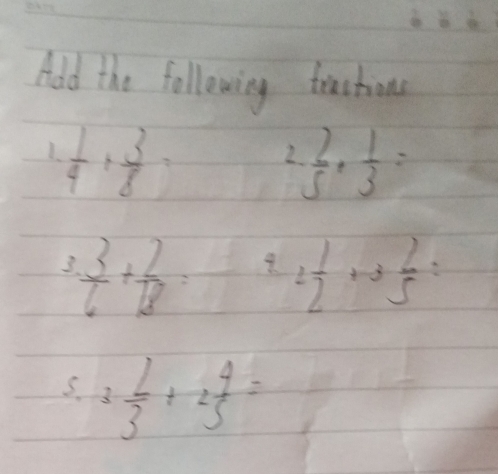 Add the following fractions
1. 1/4 + 3/8 = 2. 2/5 + 1/3 =
3. 3/6 + 2/18 = 4. 2 1/2 + 3 2/5 =
5. 3 2/3 + 2 4/5 =